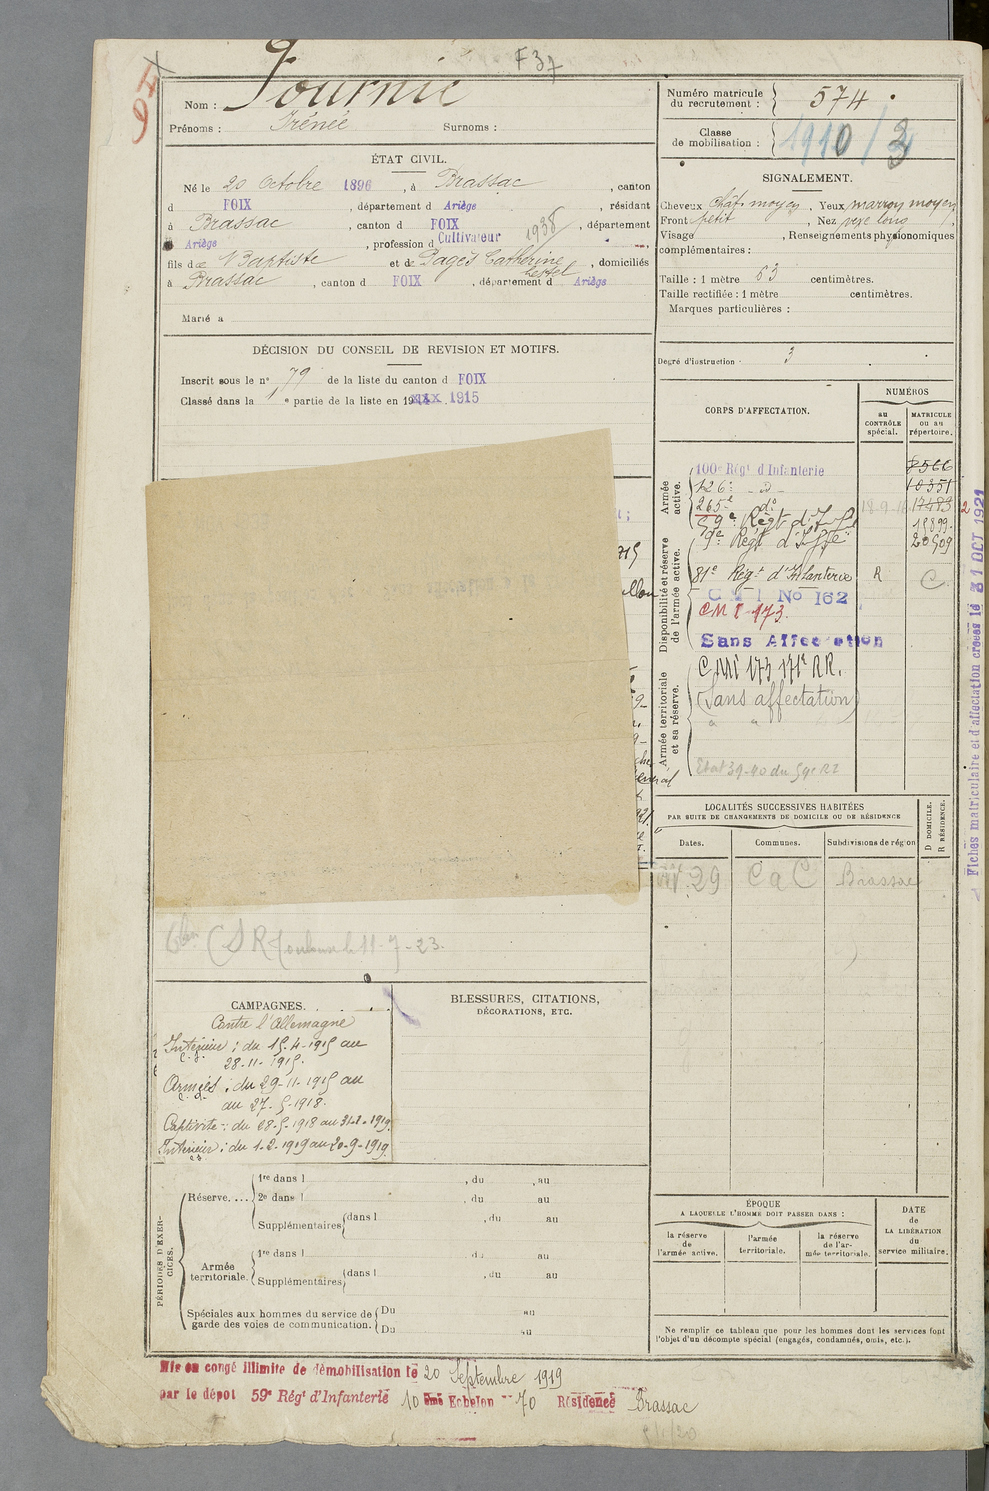 F 37
Nom : Fournié
Prénoms : Irénée Surnoms :
ÉTAT CIVIL.
Né le 20 Octobre 1896, à Brassac, canton
d FOIX, département d Ariège, résidant
à Brassac, canton d FOIX, département
Ariège, profession d Cultivateur 1938
fils de Baptiste et de Pagès Catherine, domiciliés
à Brassac, canton d FOIX, département d Ariège
Marié à
DÉCISION DU CONSEIL DE REVISION ET MOTIFS.
Inscrit sous le n° 79 de la liste du canton d FOIX
Classé dans la 1e partie de la liste en 19xxx 1915
Numéro matricule
du recrutement : 574
Classe
de mobilisation : 1910 / 3
SIGNALEMENT.
Cheveux chât. moyen, Yeux marron moyen
Front petit, Nez long
Visage , Renseignements physionomiques
complémentaires :
Taille : 1 mètre 63 centimètres.
Taille rectifiée : 1 mètre centimètres.
Marques particulières :
Degré d'instruction : 3
CORPS D'AFFECTATION.
NUMÉROS
au CONTRÔLE spécial.
MATRICULE ou au répertoire.
Armée active.
100e Régt d'Infanterie 8566
126e - d° - 10351
265e d° 18-9-16 17483
59e Régt d'Inf 15899
Disponibilité et réserve de l'armée active.
9e Régt d'Inf 20509
81e Régt d'Infanterie R C
C M I No 162
CMI 173.
Sans Affectation
Armée territoriale et sa réserve.
CMI 173 171e RR.
(Sans affectation)
Etat 39-40 du 59e RI
Fiches matriculaire et d'affectation créées le 31 OCT 1921
LOCALITÉS SUCCESSIVES HABITÉES
PAR SUITE DE CHANGEMENTS DE DOMICILE OU DE RÉSIDENCE
Dates. Communes. Subdivisions de région D DOMICILE. R RÉSIDENCE.
29 CaC Brassac
CDR Toulouse le 11-7-23.
CAMPAGNES.
Contre l'Allemagne
Intérieur : du 15-4-1915 au
28-11-1915.
Armées : du 29-11-1915 au
au 27-5-1918.
Captivité : du 28-5-1918 au 31-1-1919.
Intérieur : du 1-2-1919 au 20-9-1919.
BLESSURES, CITATIONS,
DÉCORATIONS, ETC.
PÉRIODES D'EXERCICES.
Réserve.... 1re dans l , du , au
2e dans l , du au
Supplémentaires dans l , du au
Armée territoriale. 1re dans l du au
Supplémentaires dans l , du au
Spéciales aux hommes du service de Du au
garde des voies de communication. Du au
ÉPOQUE
A LAQUELLE L'HOMME DOIT PASSER DANS :
la réserve de l'armée active.
l'armée territoriale.
la réserve de l'armée territoriale.
DATE de LA LIBÉRATION du service militaire.
Ne remplir ce tableau que pour les hommes dont les services font
l'objet d'un décompte spécial (engagés, condamnés, omis, etc.).
Mis en congé illimité de démobilisation le 20 Septembre 1919
par le dépôt 59e Régt d'Infanterie 10 ème Echelon n° 70 Résidence Brassac